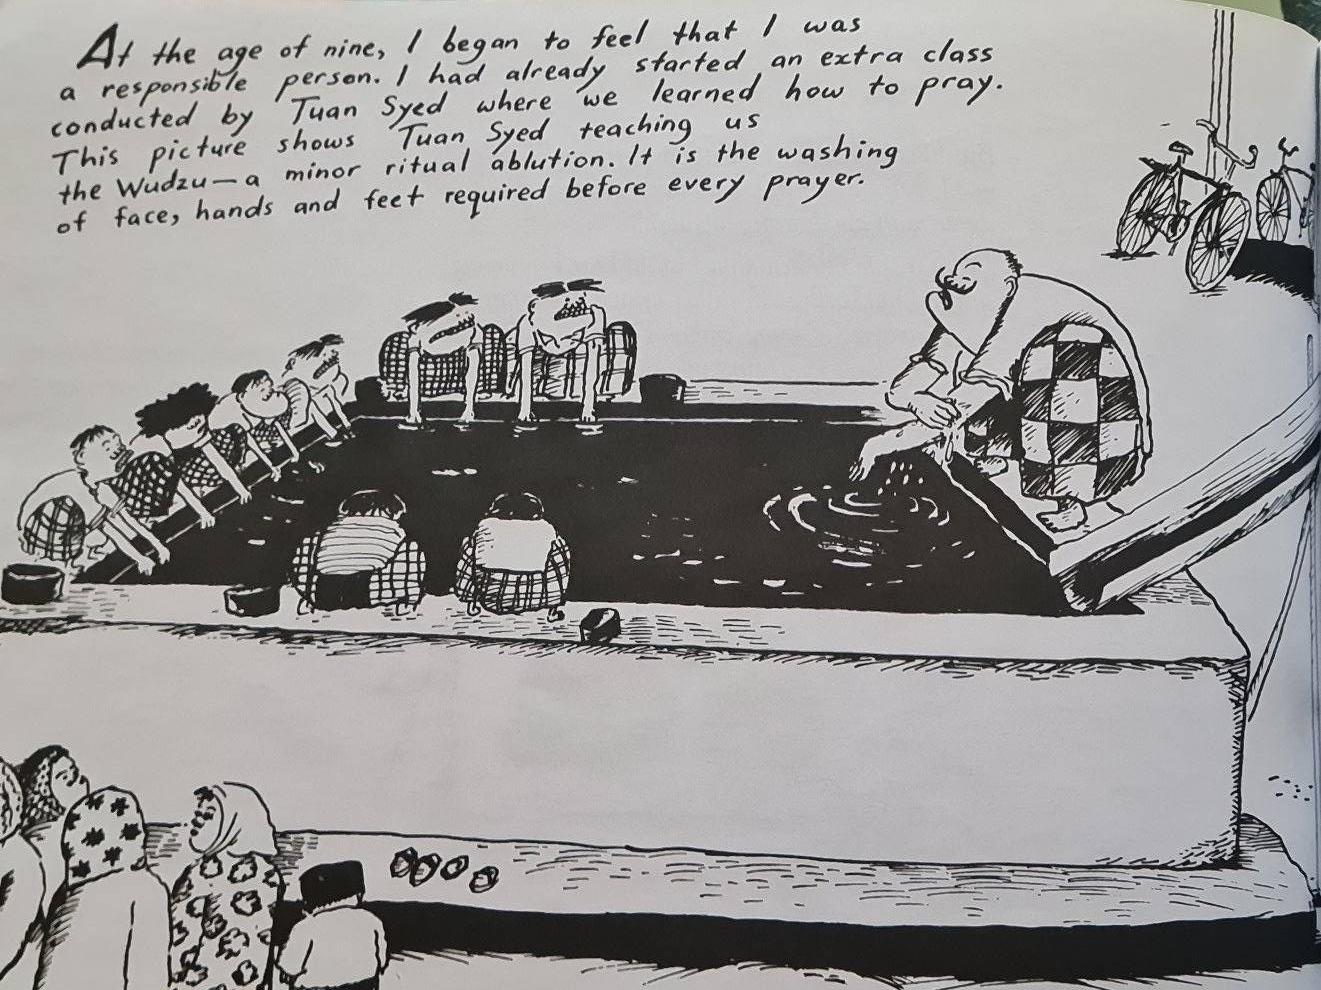 At the age of nine, I began to feel that I was
a responsible person. I had already started an extra class
conducted by Tuan Syed where we learned how to pray.
This picture shows Tuan Syed teaching us
the Wudzu—a minor ritual ablution. It is the washing
of face, hands and feet required before every prayer.